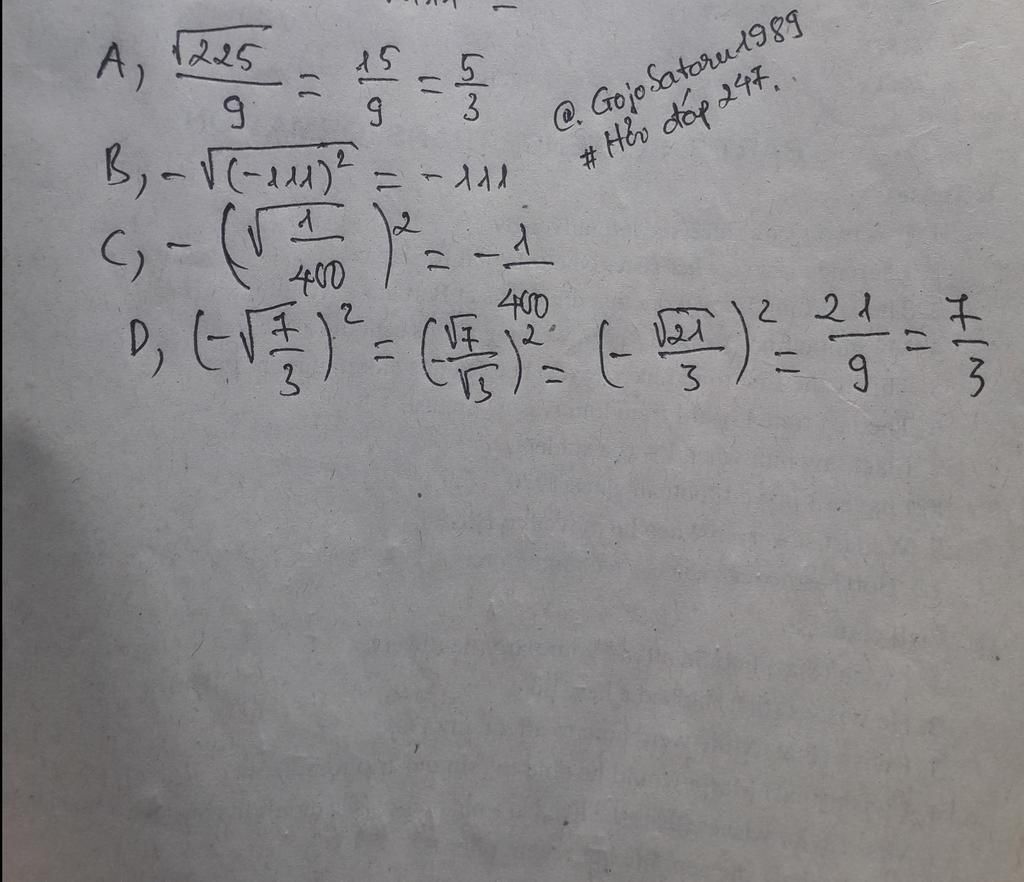 A, √225/9 = 15/9 = 5/3
@. GojoSatoru1989
# Hỏi đáp 247.
B, -√(-111)² = -111
C, -(√1/400)² = -1/400
D, (-√7/3)² = (-√7/√3)² = (-√21/3)² = 21/9 = 7/3